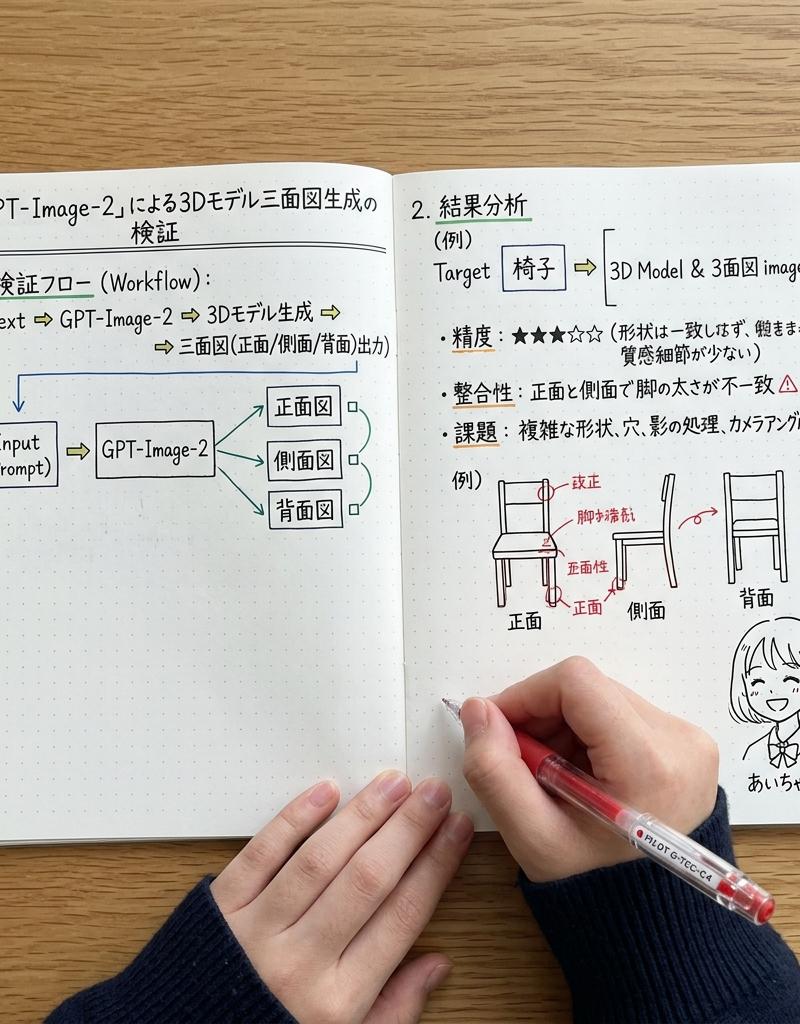 PT-Image-2」による3Dモデル三面図生成の
検証
検証フロー (Workflow):
ext ⇨ GPT-Image-2 ⇨ 3Dモデル生成 ⇨
⇨ 三面図(正面/側面/背面)出力)
nput
rompt)
GPT-Image-2
正面図
側面図
背面図
2. 結果分析
(例)
Target 椅子 ⇨ 3D Model & 3面図 image
・精度: ★★★☆☆ (形状は一致しはず、
質感細節が少ない)
・整合性: 正面と側面で脚の太さが不一致 ⚠
・課題: 複雑な形状、穴、影の処理、カメラアング
例)
改正
正面性
正面
正面
側面
背面
あいちゃ
PILOT G-TEC-C4